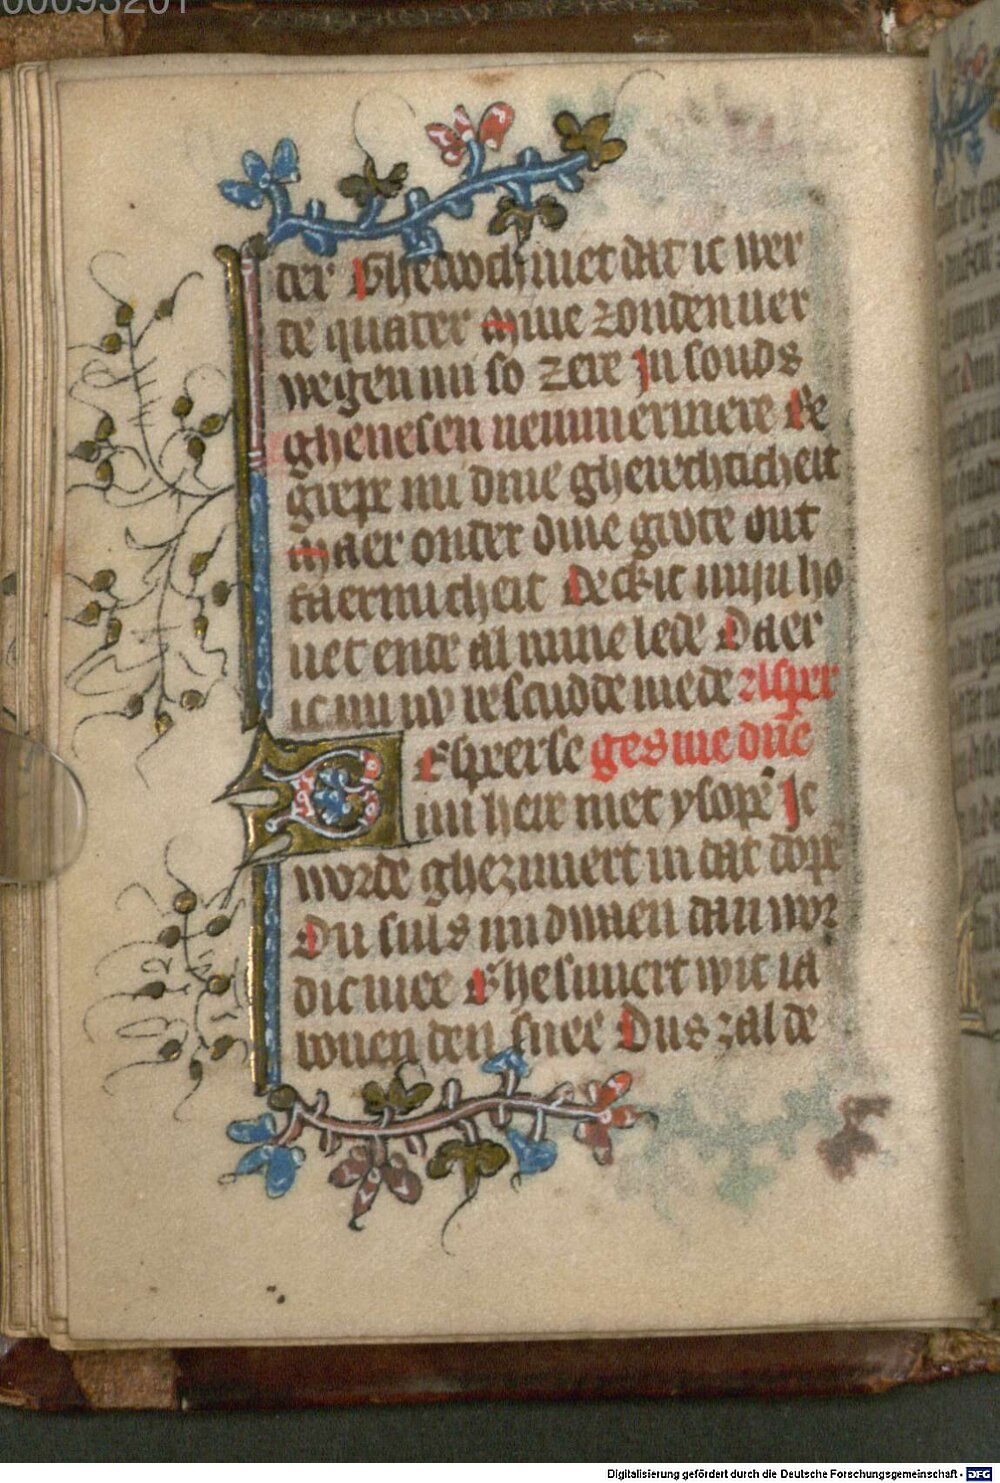 00093201
ter Ghedoch niet dat ic wer
de quader Mine zonden uer
weghen mi so zere In souds
ghenesen nemmermere Be
grepe mi dine gherechticheit
Maer onder dine grote out
faermicheit Deckic mijn ho
uet ende al mine lede Daer
ic mi
mede Asper
Esperse ges me dñe
mi here met ysope Ic
worde ghezuuert in dat dope
Du suls mi dwaen dan wor
dic mee Ghesuuert wit ia
bouen den snee Dus zal de
Digitalisierung gefördert durch die Deutsche Forschungsgemeinschaft - DFG